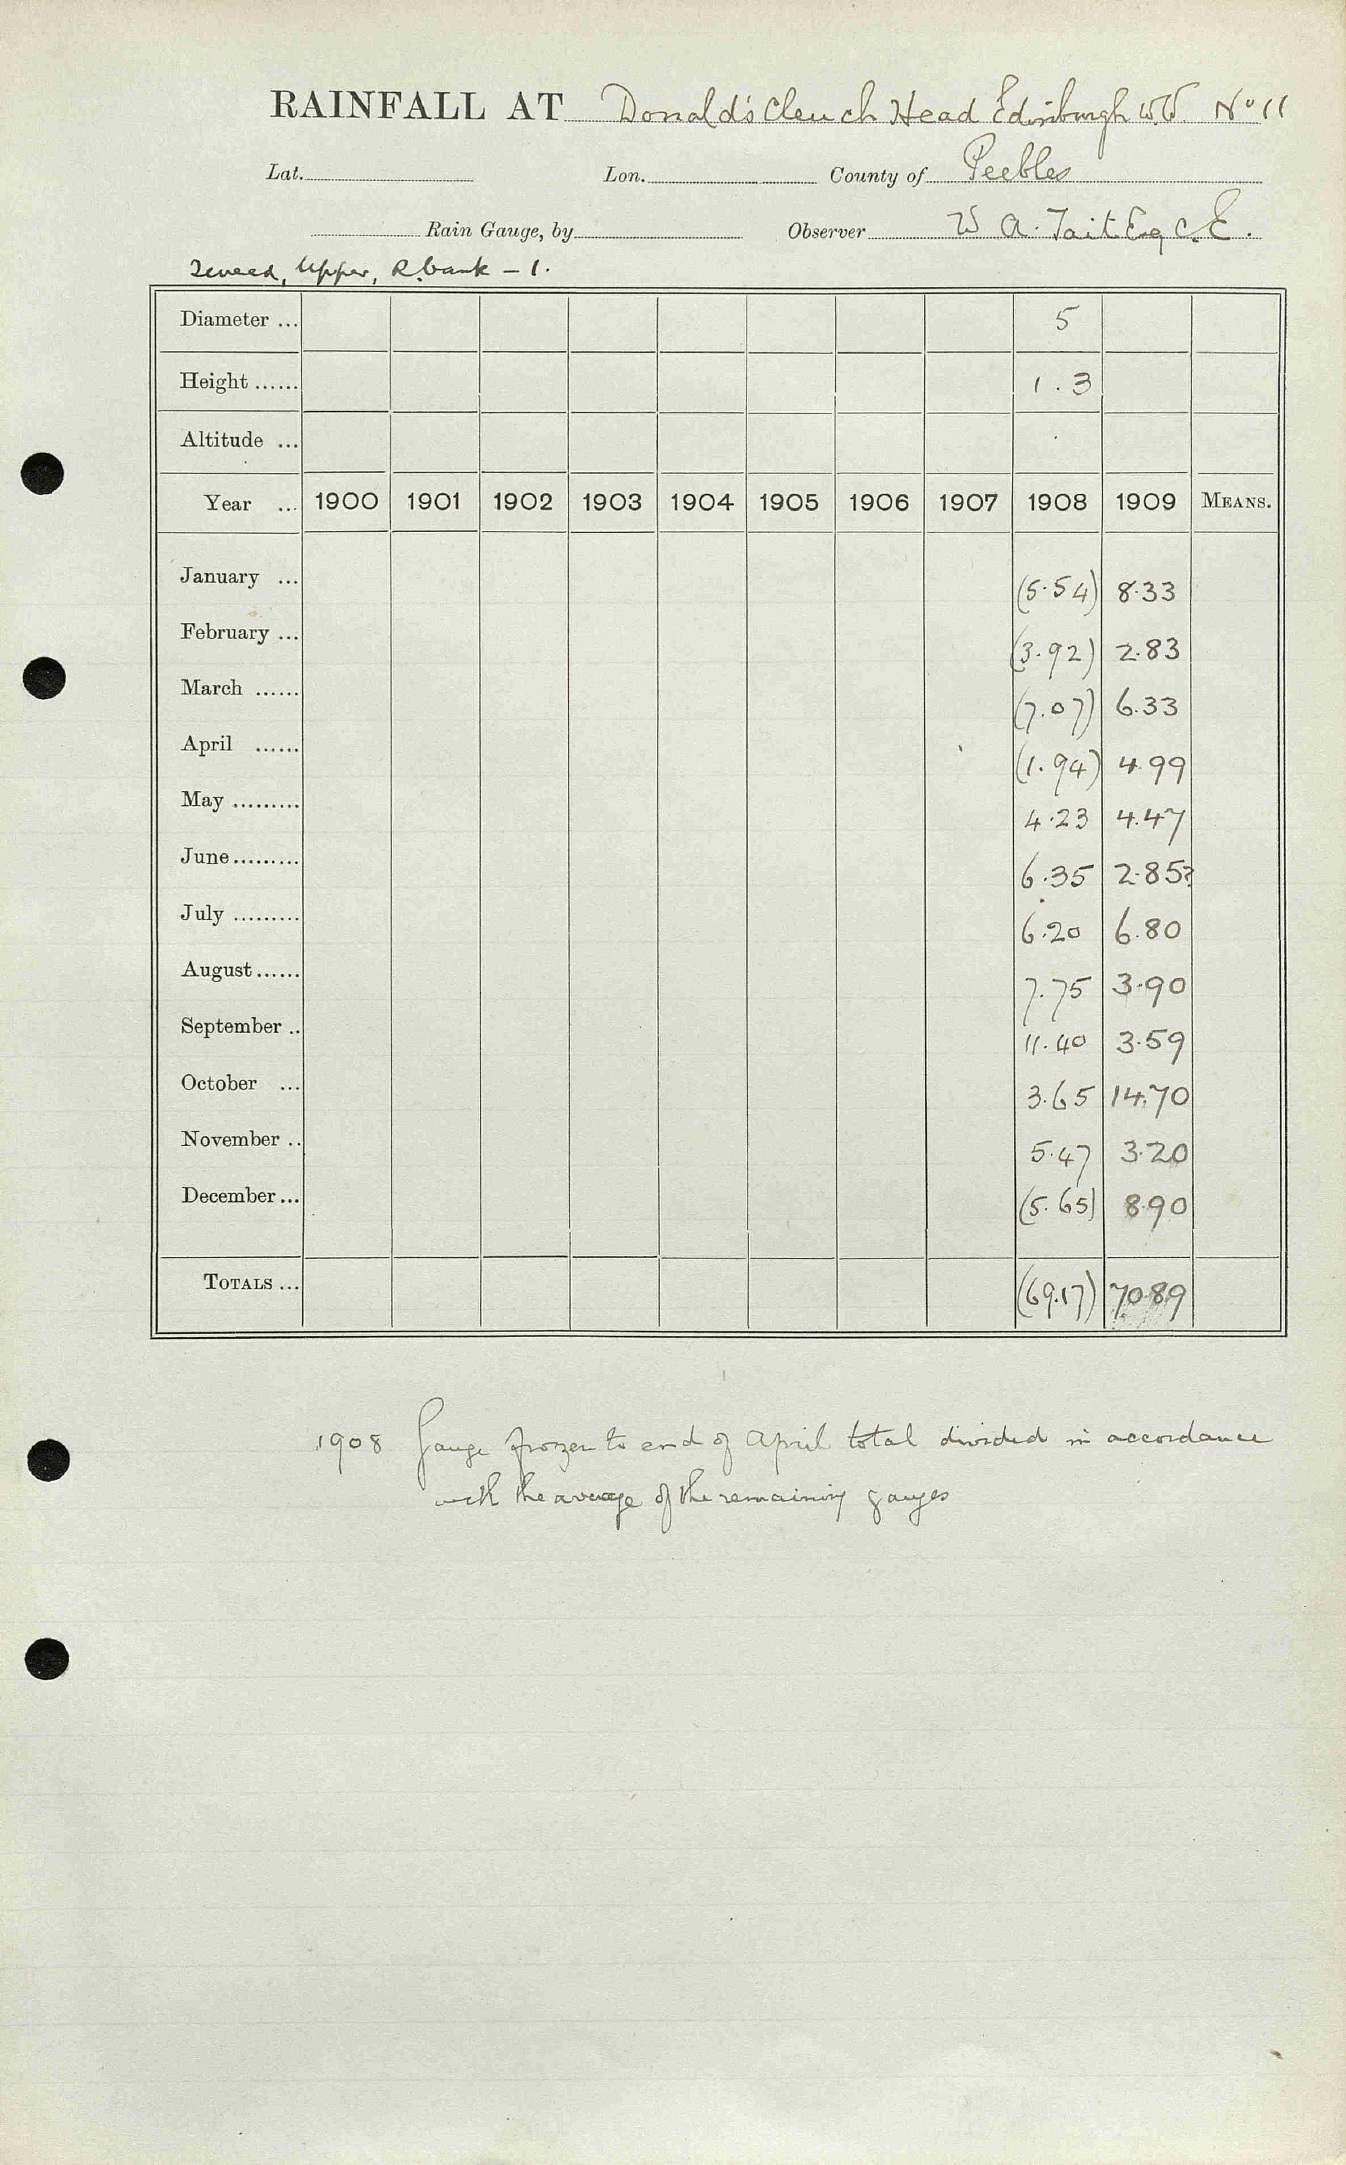 RAINFALL AT Donald's Cleuch Head Edinburgh W.W. No 11
Lat. Lon. County of Peebles
Rain Gauge, by Observer W A. Tait Esq C.E.
Tweed, Upper, R. bank – 1.
Diameter ... 5
Height ...... 1.3
Altitude ...
Year ... 1900 1901 1902 1903 1904 1905 1906 1907 1908 1909 MEANS.
January ... (5.54) 8.33
February ... (3.92) 2.83
March ...... (7.07) 6.33
April ...... (1.94) 4.99
May ......... 4.23 4.47
June ......... 6.35 2.85?
July ......... 6.20 6.80
August ...... 7.75 3.90
September .. 11.40 3.59
October ... 3.65 14.70
November .. 5.47 3.20
December ... (5.65) 8.90
TOTALS ... (69.17) 70.89
1908 Gauge frozen to end of April total divided in accordance
with the average of the remaining gauges